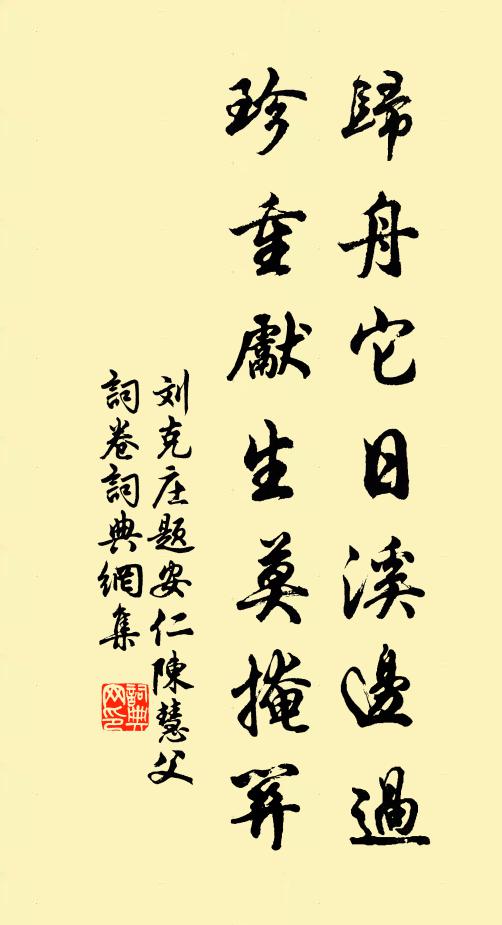 歸舟它日溪邊過
珍重獻生莫掩關
刘克庄題安仁陳慧父
詞卷詞典網集
詞典
网印